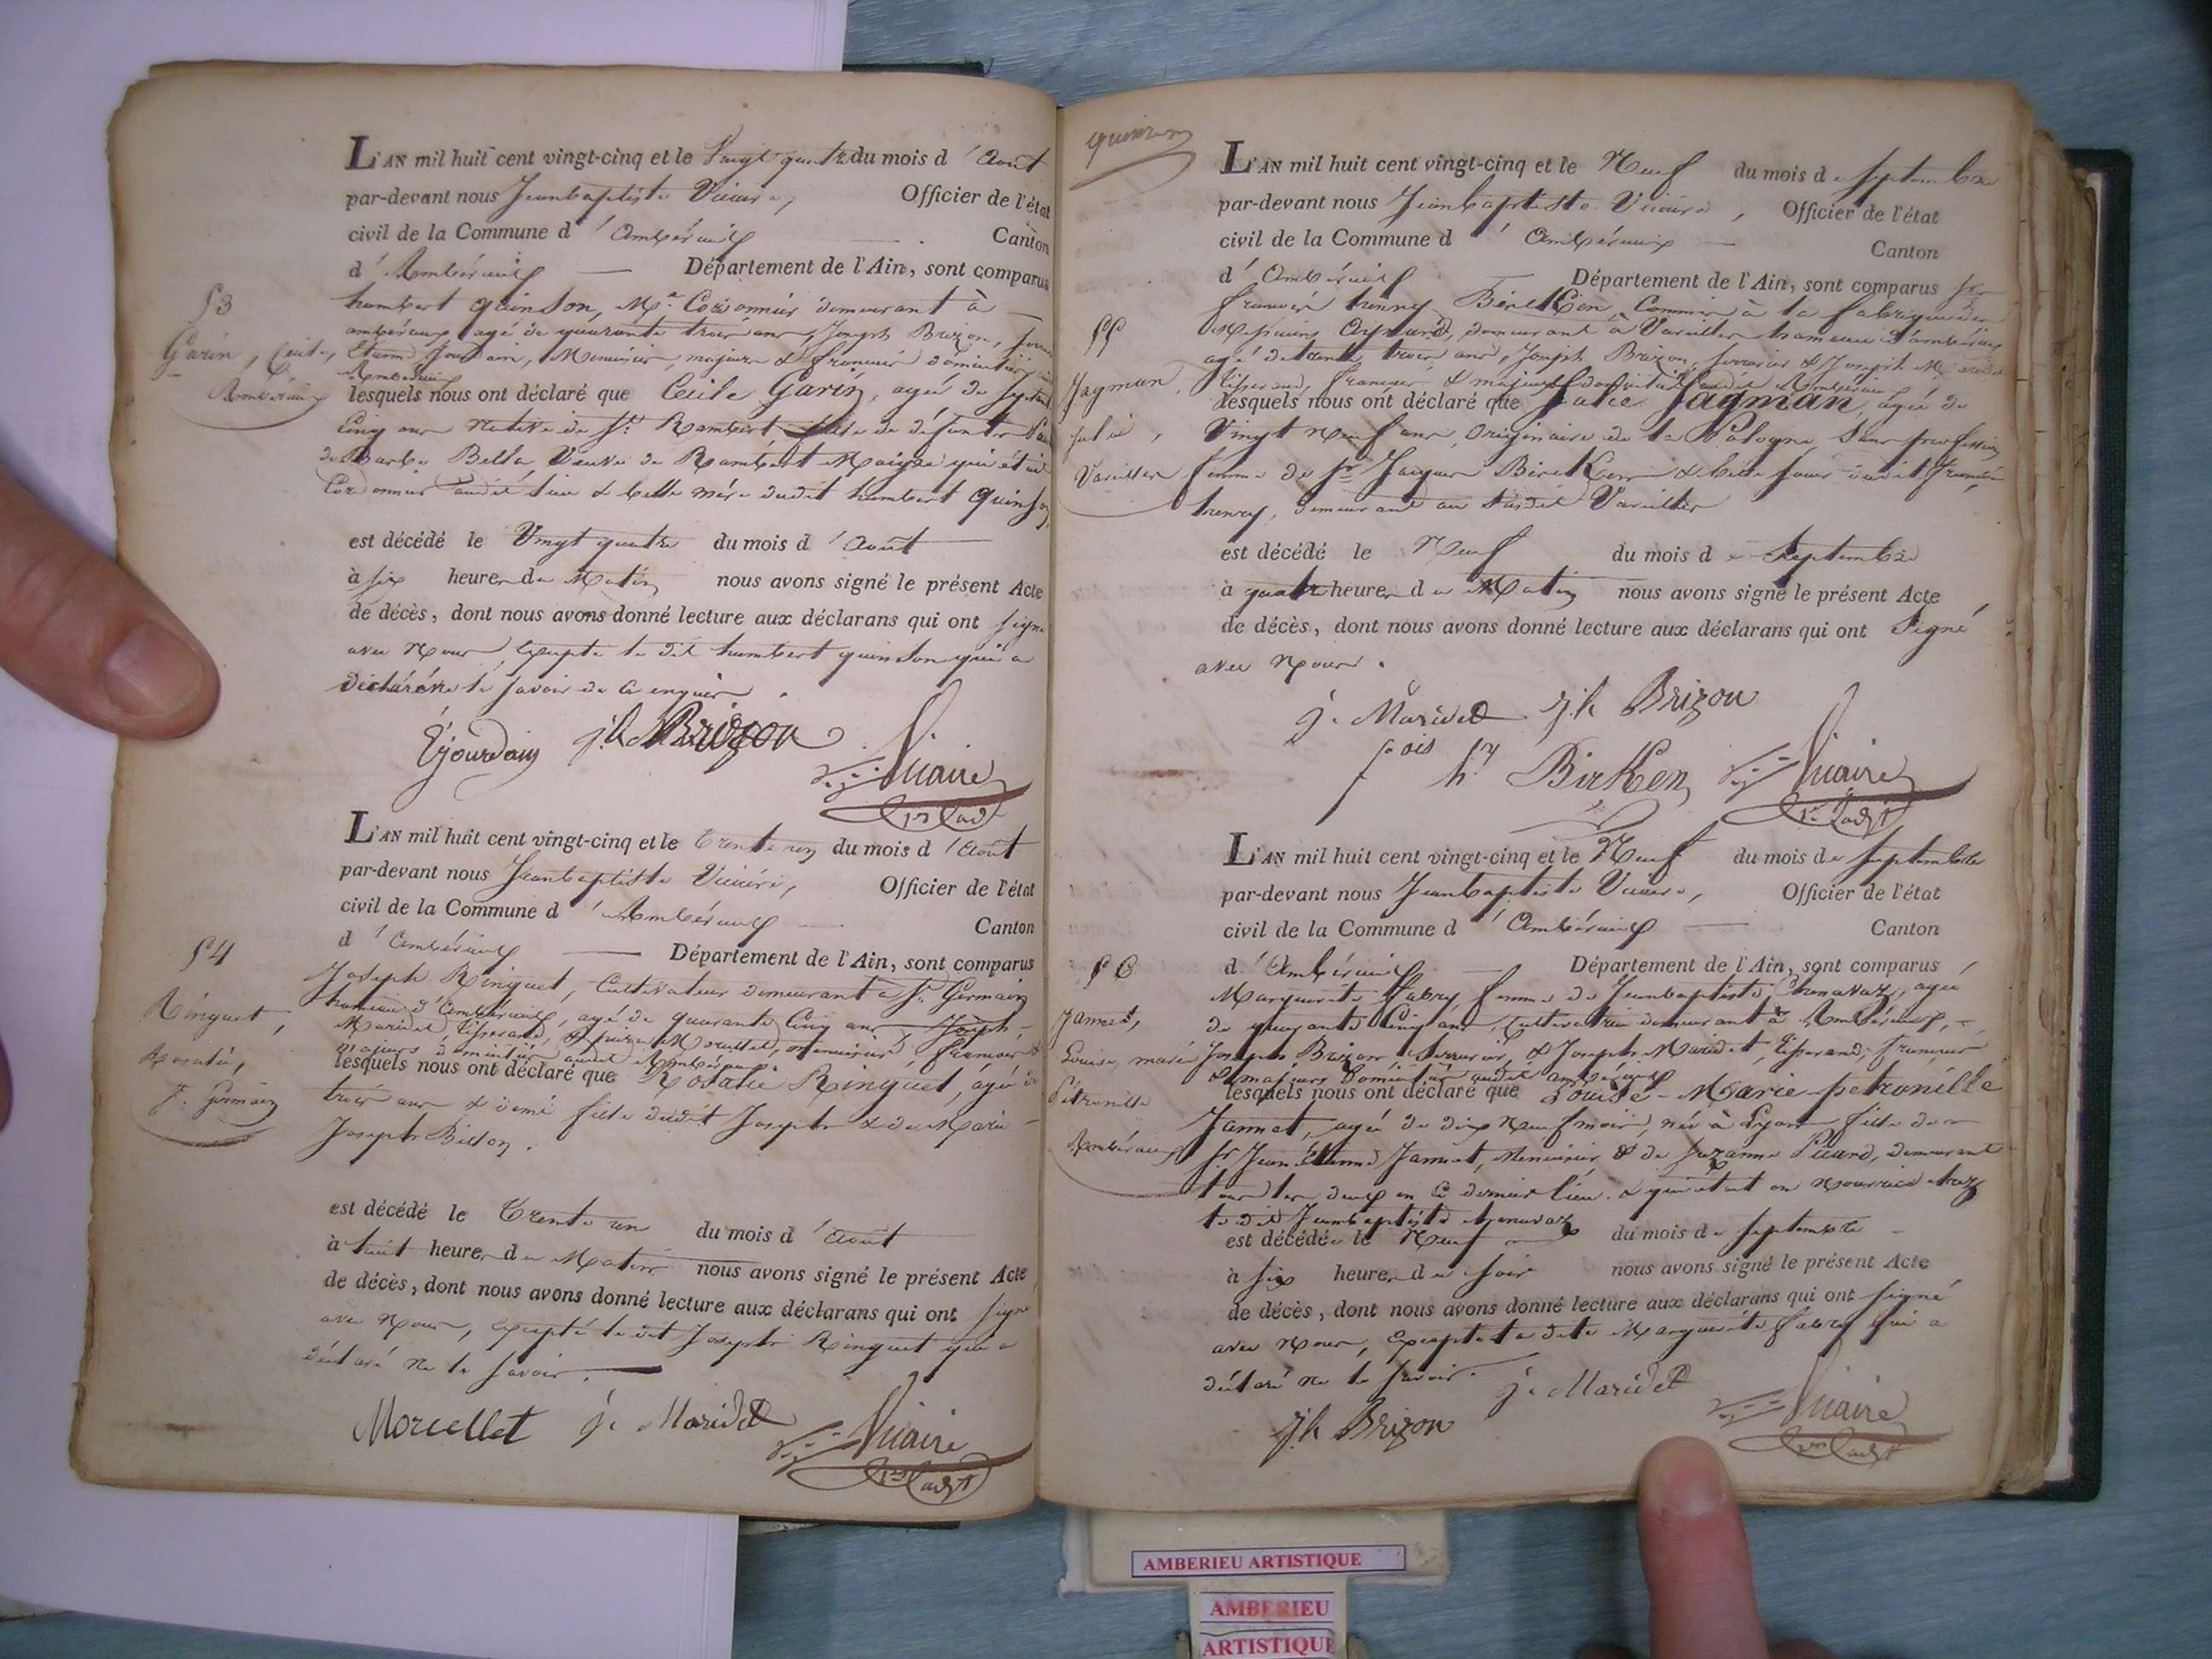 L'AN mil huit cent vingt-cinq et le Vingt quatre du mois d'Août
par-devant nous Jeanbaptiste Vicaire, Officier de l'état
civil de la Commune d'Ambérieux Canton
d'Ambérieux Département de l'Ain, sont comparus
53
Garin, Cécile,
Ambérieux
humbert quinson, Me Cordonnier demeurant à
amberieux agé de quarante trois ans, Joseph Brizon,
Etienne Jourdain, Menuisier, majeurs & français domiciliés
Ambérieux
lesquels nous ont déclaré que Cécile Garin, agée de septante
Cinq ans Native de St Rambert, fille de défunts
de Barbe Bella, Veuve de Rambert Maigre qui était
Cordonnier audit lieu & belle mère dudit humbert quinson
est décédé le Vingt quatre du mois d'Août
à six heures du Matin nous avons signé le présent Acte
de décès, dont nous avons donné lecture aux déclarans qui ont signé
avec Nous Excepté le dit humbert quinson qui a
déclaré ne le savoir de ce enquis.
E jourdain j.h Brizon Vicaire
L'AN mil huit cent vingt-cinq et le Trente un du mois d'Août
par-devant nous Jeanbaptiste Vicaire, Officier de l'état
civil de la Commune d'Ambérieux Canton
d'Ambérieux Département de l'Ain, sont comparus
54
Ringuet,
Rosalie,
St Germain
Joseph Ringuet, Cultivateur demeurant à St Germain
hameau d'Ambérieux, agé de quarante Cinq ans, Joseph
Maridet, tisserand, & Morcellet, menuisier, français &
majeurs domiciliés audit Ambérieux
lesquels nous ont déclaré que Rosalie Ringuet, agée de
trois ans & demi fille dudit Joseph & de Marie
Joseph Billon.
est décédé le Trente un du mois d'Août
à huit heures du Matin nous avons signé le présent Acte
de décès, dont nous avons donné lecture aux déclarans qui ont signé
avec Nous, Excepté le dit Joseph Ringuet qui a
déclaré ne le savoir.
Morcellet j. Maridet Vicaire
quinson
L'AN mil huit cent vingt-cinq et le Neuf du mois de Septembre
par-devant nous Jeanbaptiste Vicaire, Officier de l'état
civil de la Commune d'Ambérieux Canton
d'Ambérieux Département de l'Ain, sont comparus Sr
55
Jagman,
Julie,
Vareilles
françois henry Birckken Commis à la fabrique des
Messieurs Aynard, demeurant à Vareilles hameau d'ambérieux
agé de trente trois ans, Joseph Brizon, serrurier & Joseph Maridet
tisserand, français & majeurs domiciliés audit Ambérieux
lesquels nous ont déclaré que Julie Jagman, agée de
Vingt Neuf ans, Originaire de la Pologne, Sans profession
femme de Sr Jacques Birckken & belle soeur dudit françois
henry, demeurant au susdit Vareilles
est décédé le Neuf du mois de Septembre
à quatre heures du Matin nous avons signé le présent Acte
de décès, dont nous avons donné lecture aux déclarans qui ont Signé
avec Nous.
j. Maridet j.h Brizon
fois hy Birken Vicaire
L'AN mil huit cent vingt-cinq et le Neuf du mois de Septembre
par-devant nous Jeanbaptiste Vicaire, Officier de l'état
civil de la Commune d'Ambérieux Canton
d'Ambérieux Département de l'Ain, sont comparus
56
Jannet,
Louise, marie
Pétronille
Ambérieux
Marguerite fabry femme de Jeanbaptiste Chenavaz, agée
de quarante Cinq ans, Cultivatrice demeurant à Ambérieux,
Joseph Brizon Serrurier, & Joseph Maridet, tisserand, français
& majeurs domiciliés audit ambérieux
lesquels nous ont déclaré que Louise-Marie-petronille
Jannet, agée de dix Neuf mois, née à Lyon fille de
Sr Jean Etienne Jannet, Menuisier & de Suzanne Picard, demeurant
tous les deux en Ce dernier lieu. & qui était en Nourrice chez
le dit Jeanbaptiste Chenavaz
est décédée le Neuf du mois de Septembre
à six heures du soir nous avons signé le présent Acte
de décès, dont nous avons donné lecture aux déclarans qui ont signé
avec Nous, Excepté la dite Marguerite fabry qui a
déclaré ne le savoir.
j. Maridet
j.h Brizon Vicaire
AMBERIEU ARTISTIQUE
AMBERIEU
ARTISTIQUE